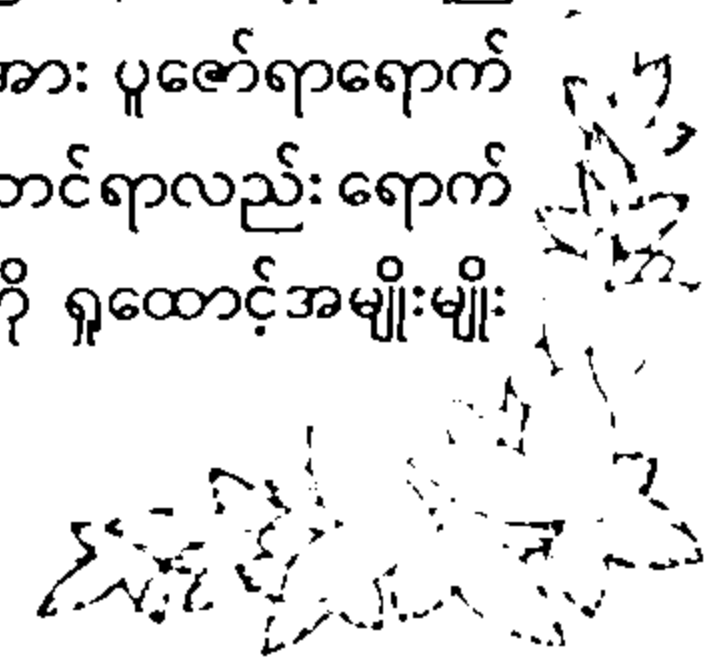 အား ပူဇော်ရာရောက်
တင်ရာလည်း ရောက်
ကို ရှုထောင့်အမျိုးမျိုး